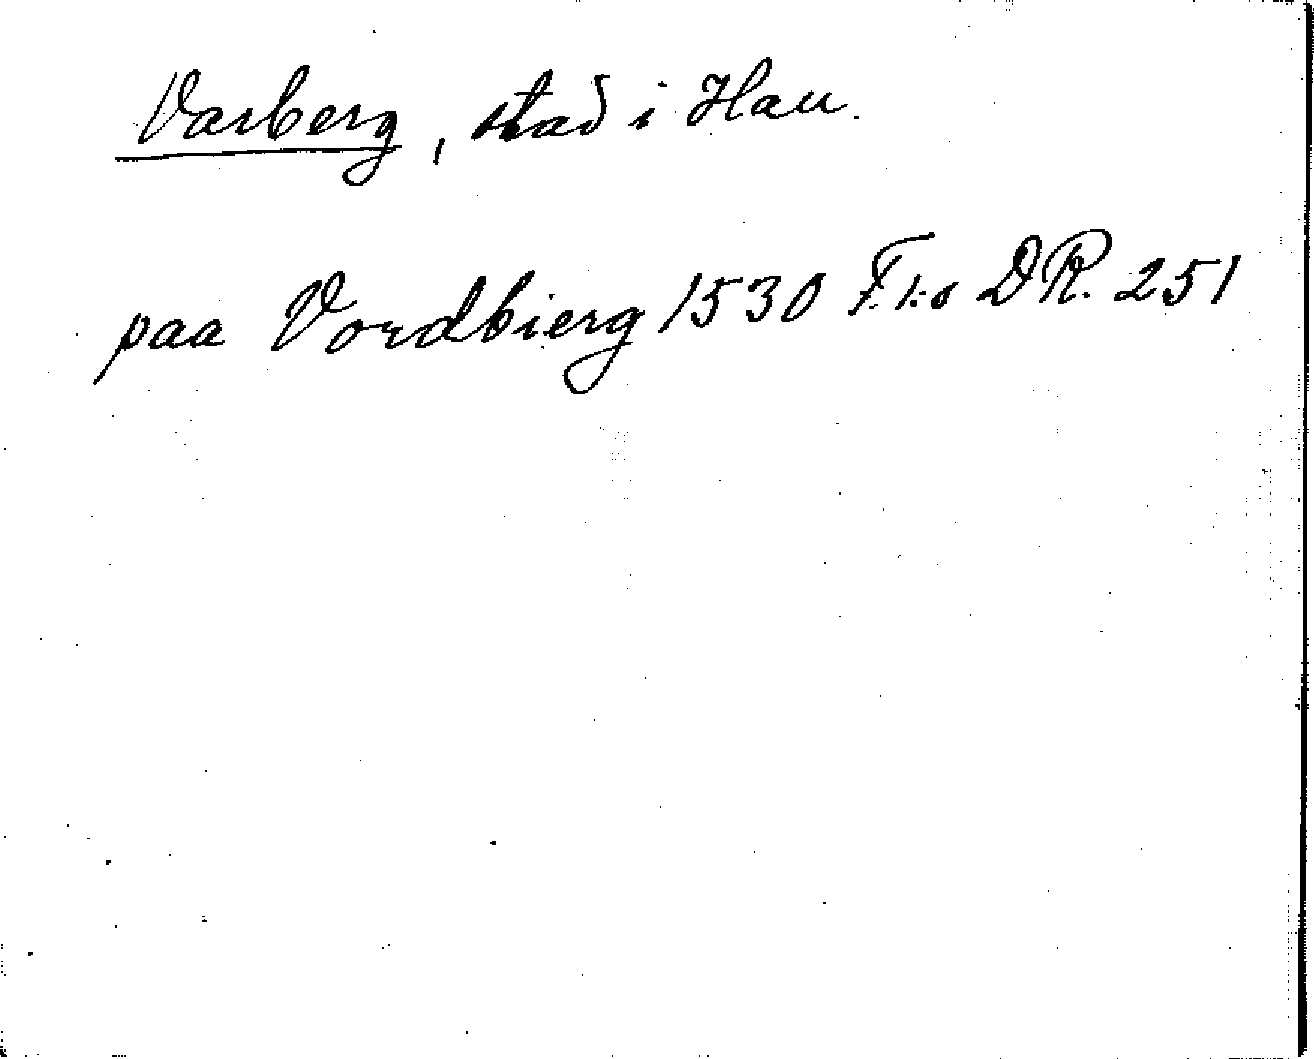 Varberg, stad i Hall.
paa Vordbierg 1530 F. 1:s DR. 251